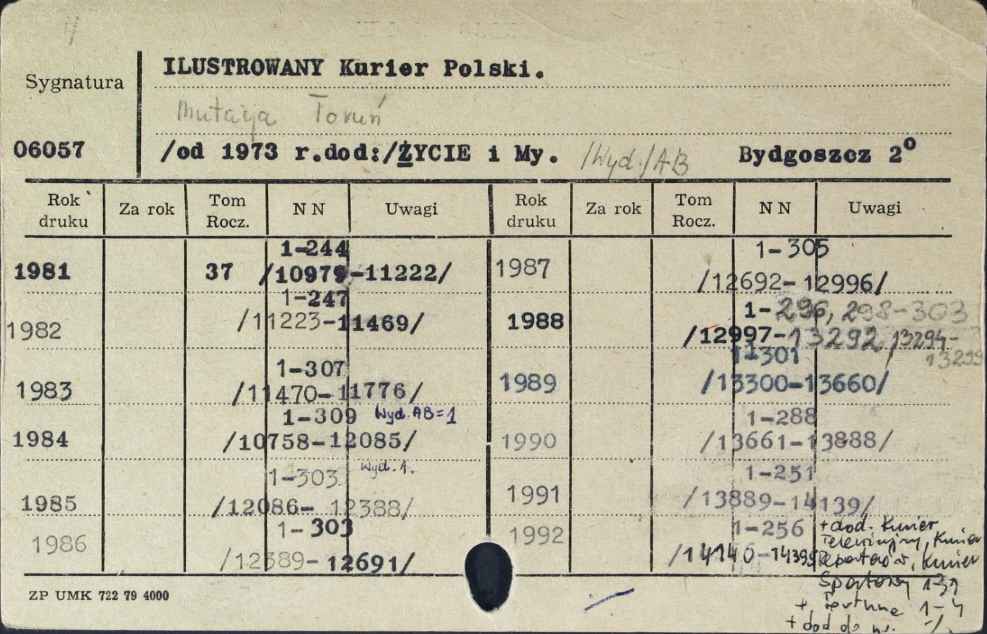 Sygnatura
06057
ILUSTROWANY Kurier Polski.
Mutacja Toruń
/od 1973 r.dod:/ŻYCIE i My. /Wyd./AB Bydgoszcz 2°
Rok druku Za rok Tom Rocz. NN Uwagi Rok druku Za rok Tom Rocz. NN Uwagi
1-244
1981 37 /10979-11222/
1-247
1982 /11223-11469/
1-307
1983 /11470-11776/
1-309 Wyd. AB=1
1984 /10758-12085/
1-303 Wyd. 1.
1985 /12086-12388/
1-303
1986 /12389-12691/
1-305
1987 /12692-12996/
1-296, 298-303
1988 /12997-13292, 13294-
13299
1-301
1989 /13300-13660/
1-288
1990 /13661-13888/
1-251
1991 /13889-14139/
1-256
1992 /14140-14395
+dod. Kurier
Telewizyjny, Kurier
Reporterów, Kurier
Sportowy 1-39
+ 1-4
+ dod do nr.
ZP UMK 722 79 4000